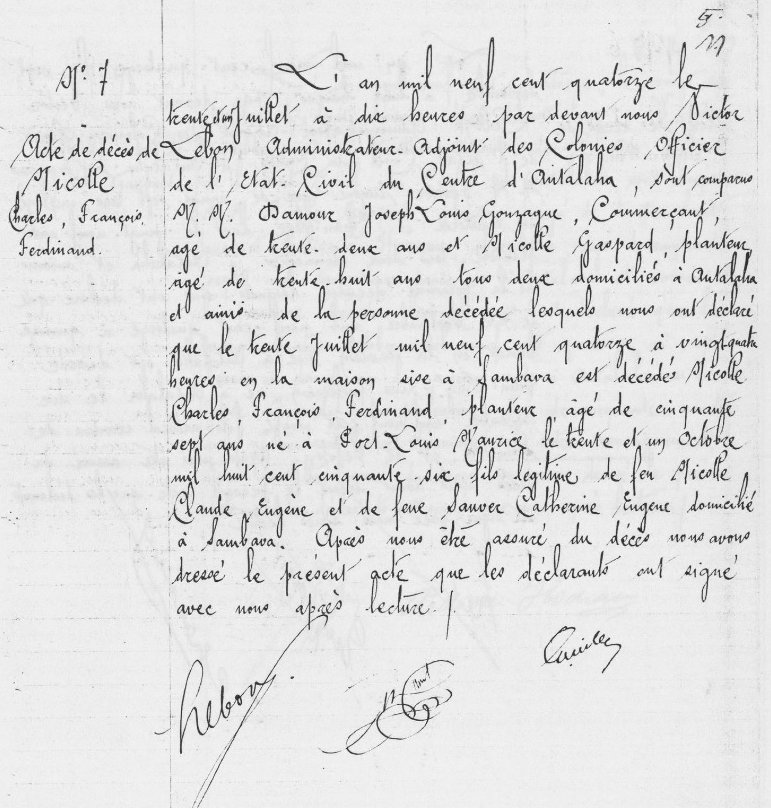 N° 7
Acte de décès de
Nicolle
Charles, François,
Ferdinand.
L'an mil neuf cent quatorze le
trente et un Juillet à dix heures par devant nous Victor
Lebon, Administrateur-Adjoint des Colonies Officier
de l'Etat-Civil du Centre d'Antalaha, sont comparus
M. M. Damour Joseph Louis Gonzague, Commerçant,
agé de trente-deux ans et Nicolle Gaspard, planteur
agé de trente-huit ans tous deux domiciliés à Antalaha
et amis de la personne décédée lesquels nous ont déclaré
que le trente Juillet mil neuf cent quatorze à vingt-quatre
heures en la maison sise à Sambava est décédé Nicolle
Charles, François, Ferdinand, planteur, âgé de cinquante
sept ans né à Port-Louis Maurice le trente et un Octobre
mil huit cent cinquante-six, fils legitime de feu Nicolle
Claude Eugène et de feue Sauver Catherine Eugene domicilié
à Sambava. Après nous être assuré du décès nous avons
dressé le présent acte que les déclarants ont signé
avec nous après lecture./.
Lebon